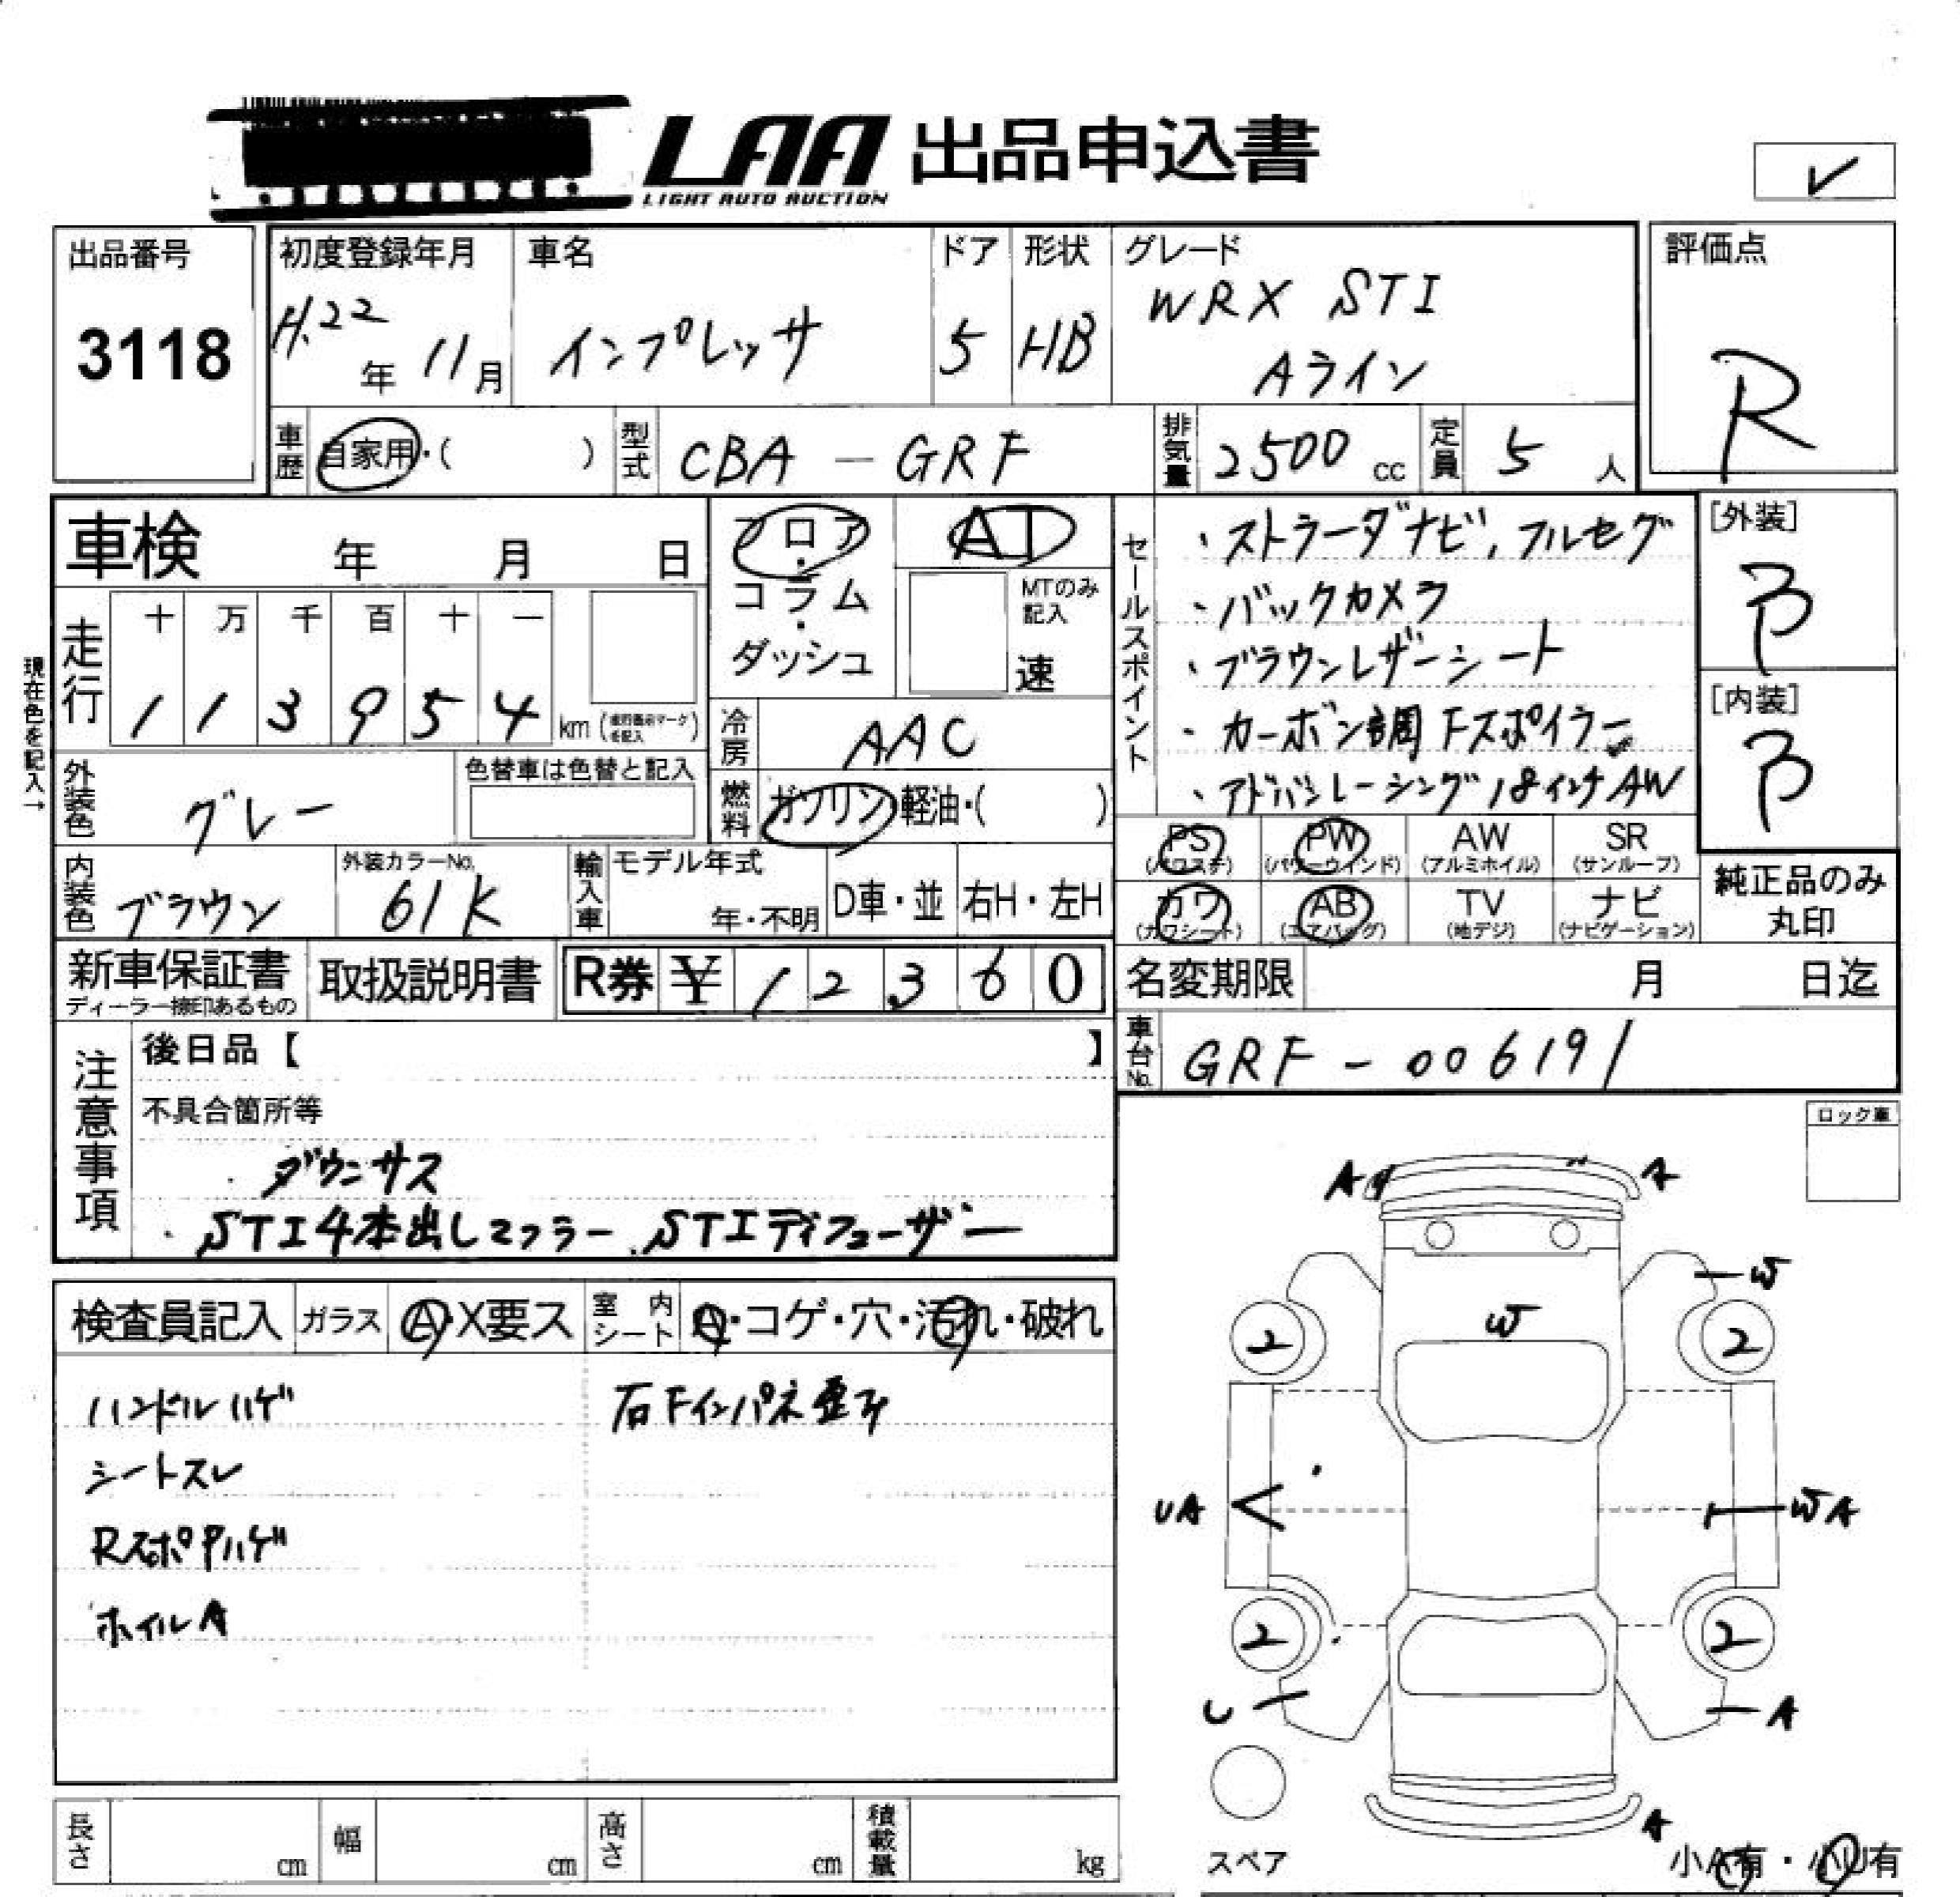 LAA 出品申込書
LIGHT AUTO AUCTION
出品番号
3118
初度登録年月
H.22年 11月
車名
インプレッサ
ドア
5
形状
HB
グレード
WRX STI
Aライン
評価点
R
車歴 自家用・( )
型式 CBA-GRF
排気量 2500 cc
定員 5 人
車検 年 月 日
現在色を記入→
走行
十 万 千 百 十 一
1 1 3 9 5 4 km
フロア・コラム・ダッシュ
AT
MTのみ記入
速
冷房 AAC
燃料 ガソリン・軽油・( )
外装色 グレー
色替車は色替と記入
内装色 ブラウン
外装カラーNo. 61K
輸入車 モデル年式
年・不明
D車・並
右H・左H
セールスポイント
・ストラーダナビ、フルセグ
・バックカメラ
・ブラウンレザーシート
・カーボン調Fスポイラー
・アドバンレーシング18インチAW
[外装]
B
[内装]
B
PS (パワステ)
PW (パワーウインド)
AW (アルミホイル)
SR (サンルーフ)
カワ (カワシート)
AB (エアバッグ)
TV (地デジ)
ナビ (ナビゲーション)
純正品のみ
丸印
新車保証書
ディーラー捺印あるもの
取扱説明書
R券 ¥ 12360
名変期限 月 日迄
車台No. GRF-006191
注意事項
後日品【 】
不具合箇所等
・ダウンサス
・STI4本出しマフラー、STIディフューザー
検査員記入
ガラス A・X要ス
室内シート A・コゲ・穴・汚れ・破れ
ハンドルハゲ
シートスレ
RスポPハゲ
ホイルA
右Fインパネ歪み
ロック車
A
A
W
W
2
2
UA
WA
2
2
U
A
A
スペア
小A有・小U有
長さ cm
幅 cm
高さ cm
積載量 kg